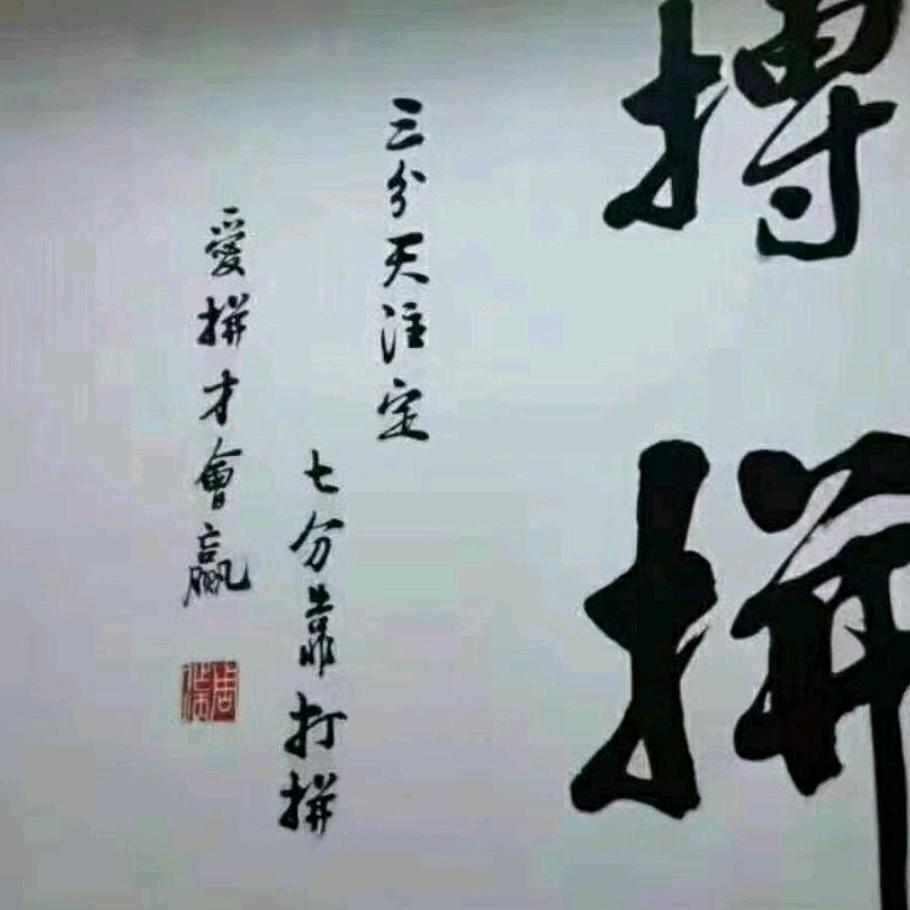 搏拼
三分天注定
七分靠打拼
愛拼才會贏